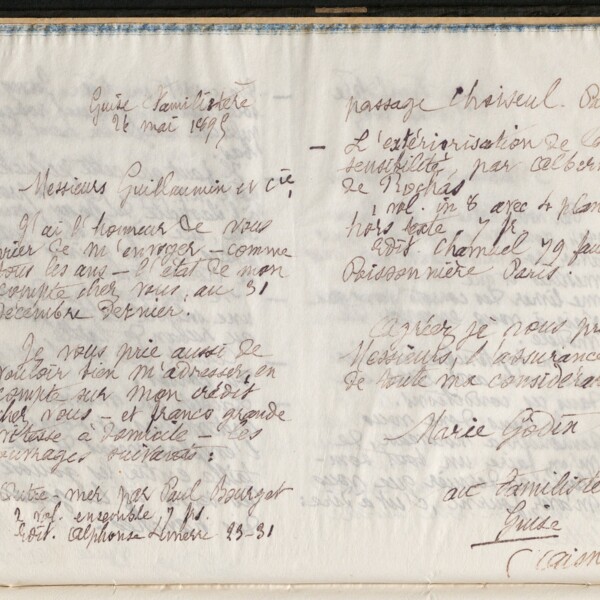 Guise Familistère
26 mai 1895
Messieurs Guillaumin et cie,
J'ai l'honneur de vous
prier de m'envoyer – comme
tous les ans – l'état de mon
compte chez vous, au 31
décembre dernier.
Je vous prie aussi de
vouloir bien m'adresser, en
compte sur mon crédit
chez vous – et franco grande
vitesse à domicile – les
ouvrages suivants:
Outre-mer par Paul Bourget
2 vol. ensemble 7 fr.
Edit. Alphonse Lemerre 23-31
passage Choiseul.
– L'extériorisation de la
sensibilité, par Albert
de Rochas
1 vol. in 8 avec 4 plan
hors texte 7 fr
Edit. Chamuel 79 fau
Poissonnière Paris.
Agréer je vous pr
Messieurs, l'assurance
de toute ma considérat
Marie Godin
au Familistè
Guise
(Aisn